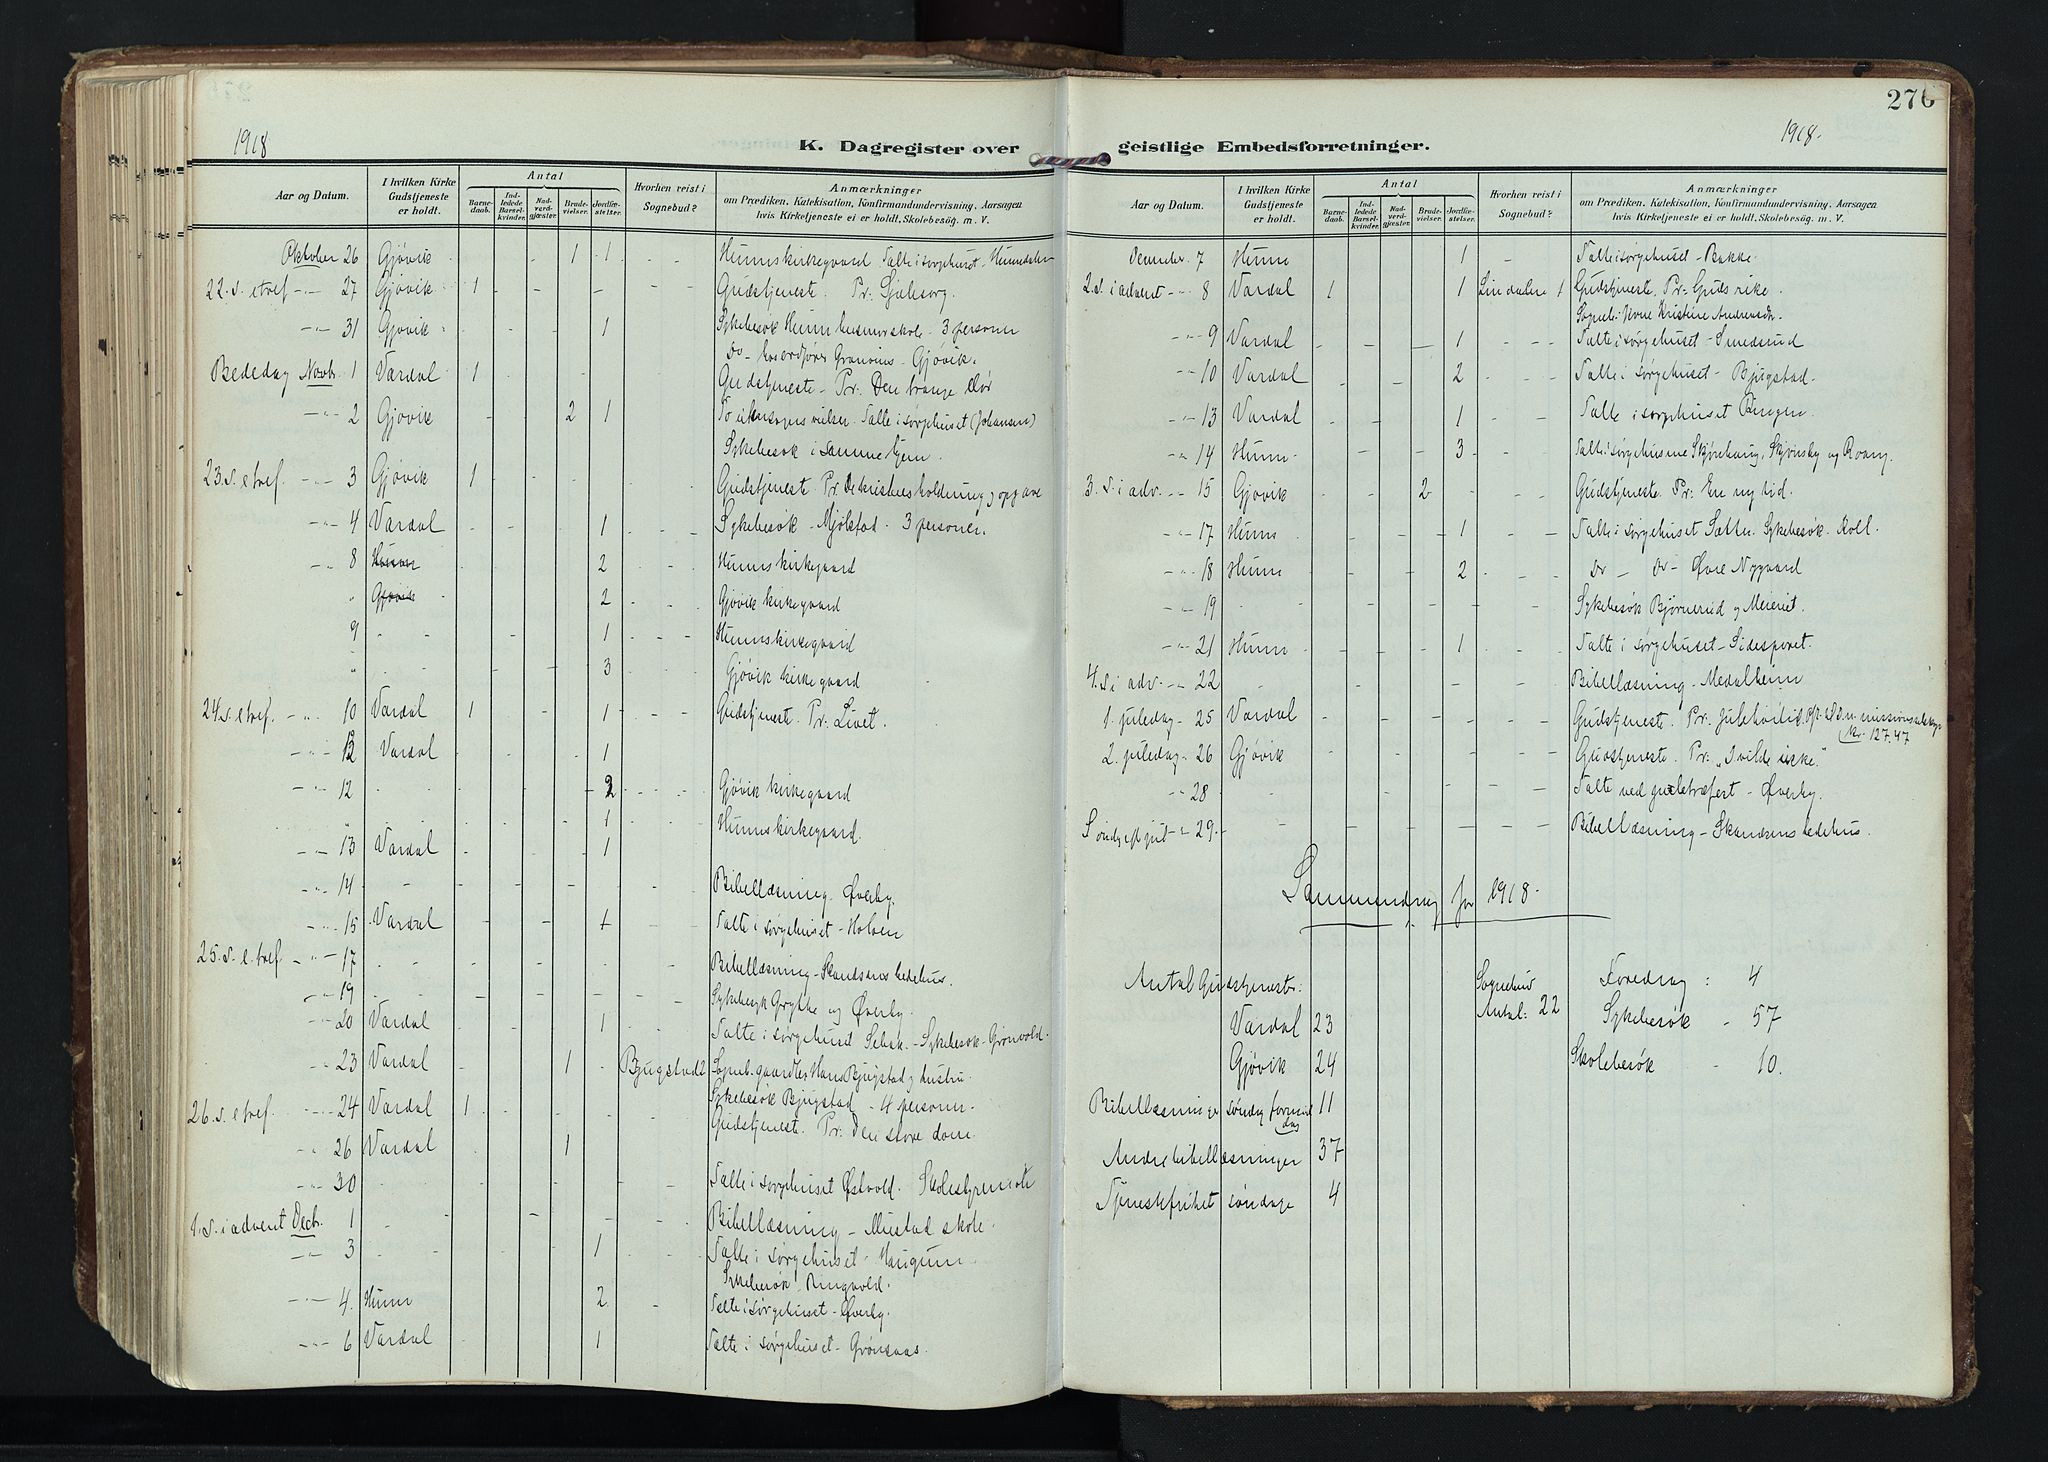 276
1918
K. Dagregister over
Aar og Datum.
I hvilken Kirke Gudstjeneste er holdt.
Antal
Barnedaab.
Indledede Barselkvinder.
Nadverdgjæster.
Brudevielser.
Jordfæstelser.
Hvorhen reist i Sognebud?
Anmærkninger
om Prædiken, Katekisation, Konfirmandundervisning, Aarsagen
hvis Kirketjeneste ei er holdt, Skolebesög, m. V.
Oktober 26 Gjøvik 1 1 - - Hunns kirkegaard. Talte i sørgehuset - Hunndalen
22. s. e tref - " - 27 Gjøvik 1 - - - Gudstjeneste. Pr: Sjælesorg.
- " - 31 Gjøvik - - - 1 Sykebesøk Hunn husmorskole - 3 personer
Do - Gjøvik.
Bededag Novb. 1 Vardal 1 - - - Gudstjeneste - Pr: Den trange dør
- " - 2 Gjøvik - - 2 1 To vielser. Talte i sørgehuset (Johansen)
Sykebesøk i samme hjem.
23. s. e tref - " - 3 Gjøvik 1 - - - Gudstjeneste. Pr. De kristnes holdning og opgave
- " - 4 Vardal - - - 1 Sykebesøk - Mjølstad - 3 personer.
- " - 8 Hunn 2 Hunns kirkegaard
" Gjøvik 2 Gjøvik kirkegaard
9 - - 1 Hunns kirkegaard
" - - 3 Gjøvik kirkegaard
24. s. e tref. - " - 10 Vardal 1 - - 1 Gudstjeneste. Pr: Livet.
- " - 12 Vardal - - 1
- " - 12 - - 2 Gjøvik kirkegaard
" - - 1 Hunns kirkegaard.
- " - 13 Vardal - - 1
- " - 14 - - Bibellæsning - Øverby.
- " - 15 Vardal - - 1 Talte i sørgehuset - Holven
25. s. e. tref - " - 17 - - Bibellæsning - Skandsens bedehus.
- " - 19 - - og Øverby.
- " - 20 Vardal - - 1 Talte i sørgehuset - Sykebesøk - Grønvold.
- " - 23 Vardal - - 1 - Bjugstad Sogneb. gaardbr. Hans Bjugstad og hustru.
Sykebesøk Bjugstad - 4 personer.
26. s. e tref. - " - 24 Vardal 1 - - - Gudstjeneste. Pr: Den store dom.
- " - 26 Vardal - - 1
- " - 30 Talte i sørgehuset Østvold. Skolestyremøte
1. s. i advent Decb. 1 - - Bibellæsning - Mustad skole.
- " - 3 - - 1 Talte i sørgehuset - Haugum
Sykebesøk Ringvold.
- " - 4. Hunn 2 - Talte i sørgehuset - Øverby.
- " - 6 Vardal - - 1 Talte i sørgehuset - Grønsaas.
1918.
geistlige Embedsforretninger.
Aar og Datum.
I hvilken Kirke Gudstjeneste er holdt.
Antal
Barnedaab.
Indledede Barselkvinder.
Nadverdgjæster.
Brudevielser.
Jordfæstelser.
Hvorhen reist i Sognebud?
Anmærkninger
om Prædiken, Katekisation, Konfirmandundervisning, Aarsagen
hvis Kirketjeneste ei er holdt, Skolebesög, m. V.
December 7 Hunn 1 - Talte i sørgehuset - Bakke.
2. s. i advent - " - 8 Vardal 1 1 Lindalen 1 Gudstjeneste. Pr: Guds rike.
Sogneb: Kone Kristine Andreasdtr.
- " - 9 Vardal - - 1 Talte i sørgehuset - Smedsrud
- " - 10 Vardal - - 2 Talte i sørgehuset - Bjugstad.
- " - 13 Vardal - - 1 Talte i sørgehuset Ringen.
- " - 14 Hunn - - 3 Talte i sørgehusene Skjønhaug, Skjønsby og Roang.
3. s. i adv. - " - 15 Gjøvik - - 2 - Gudstjeneste. Pr: En ny tid.
- " - 17 Hunn - - 1 Talte i sørgehuset Sætter. Sykebesøk. Roll.
- " - 18 Hunn - - 2 Do - Do - Øvre Nygaard
- " - 19 - - Sykebesøk Bjørnerud og Meieriet.
- " - 21 Hunn - - 1 Talte i sørgehuset - Sidesporet.
4. s. i adv. - " - 22 Bibellæsning - Medalheim
1. juledag - 25 Vardal - - Gudstjeneste. Pr: Julehøitid.
Kr. 127.47
2. juledag - 26 Gjøvik - - Gudstjeneste. Pr: "I vilde ikke."
- " - 28 - - Talte ved juletræfest - Øverby.
Søndag eft. jul - " - 29 - - Bibellæsning - Skandsens bedehus.
Sammendrag for 1918.
Antal Gudstjenester: Sognebud Foredrag : 4
Vardal 23 Antal: 22 Sykebesøk - 57
Gjøvik 24 Skolebesøk - 10.
Bibellæsninger søndag formiddag 11
Andre bibellæsninger 37
Tjenestefrihet søndage 4